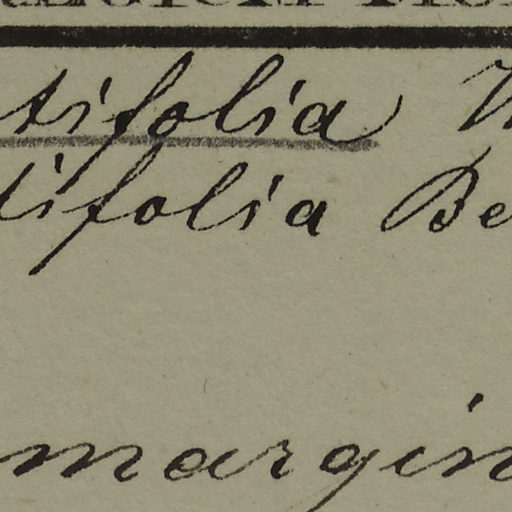 tifolia
tifolia Be
margin